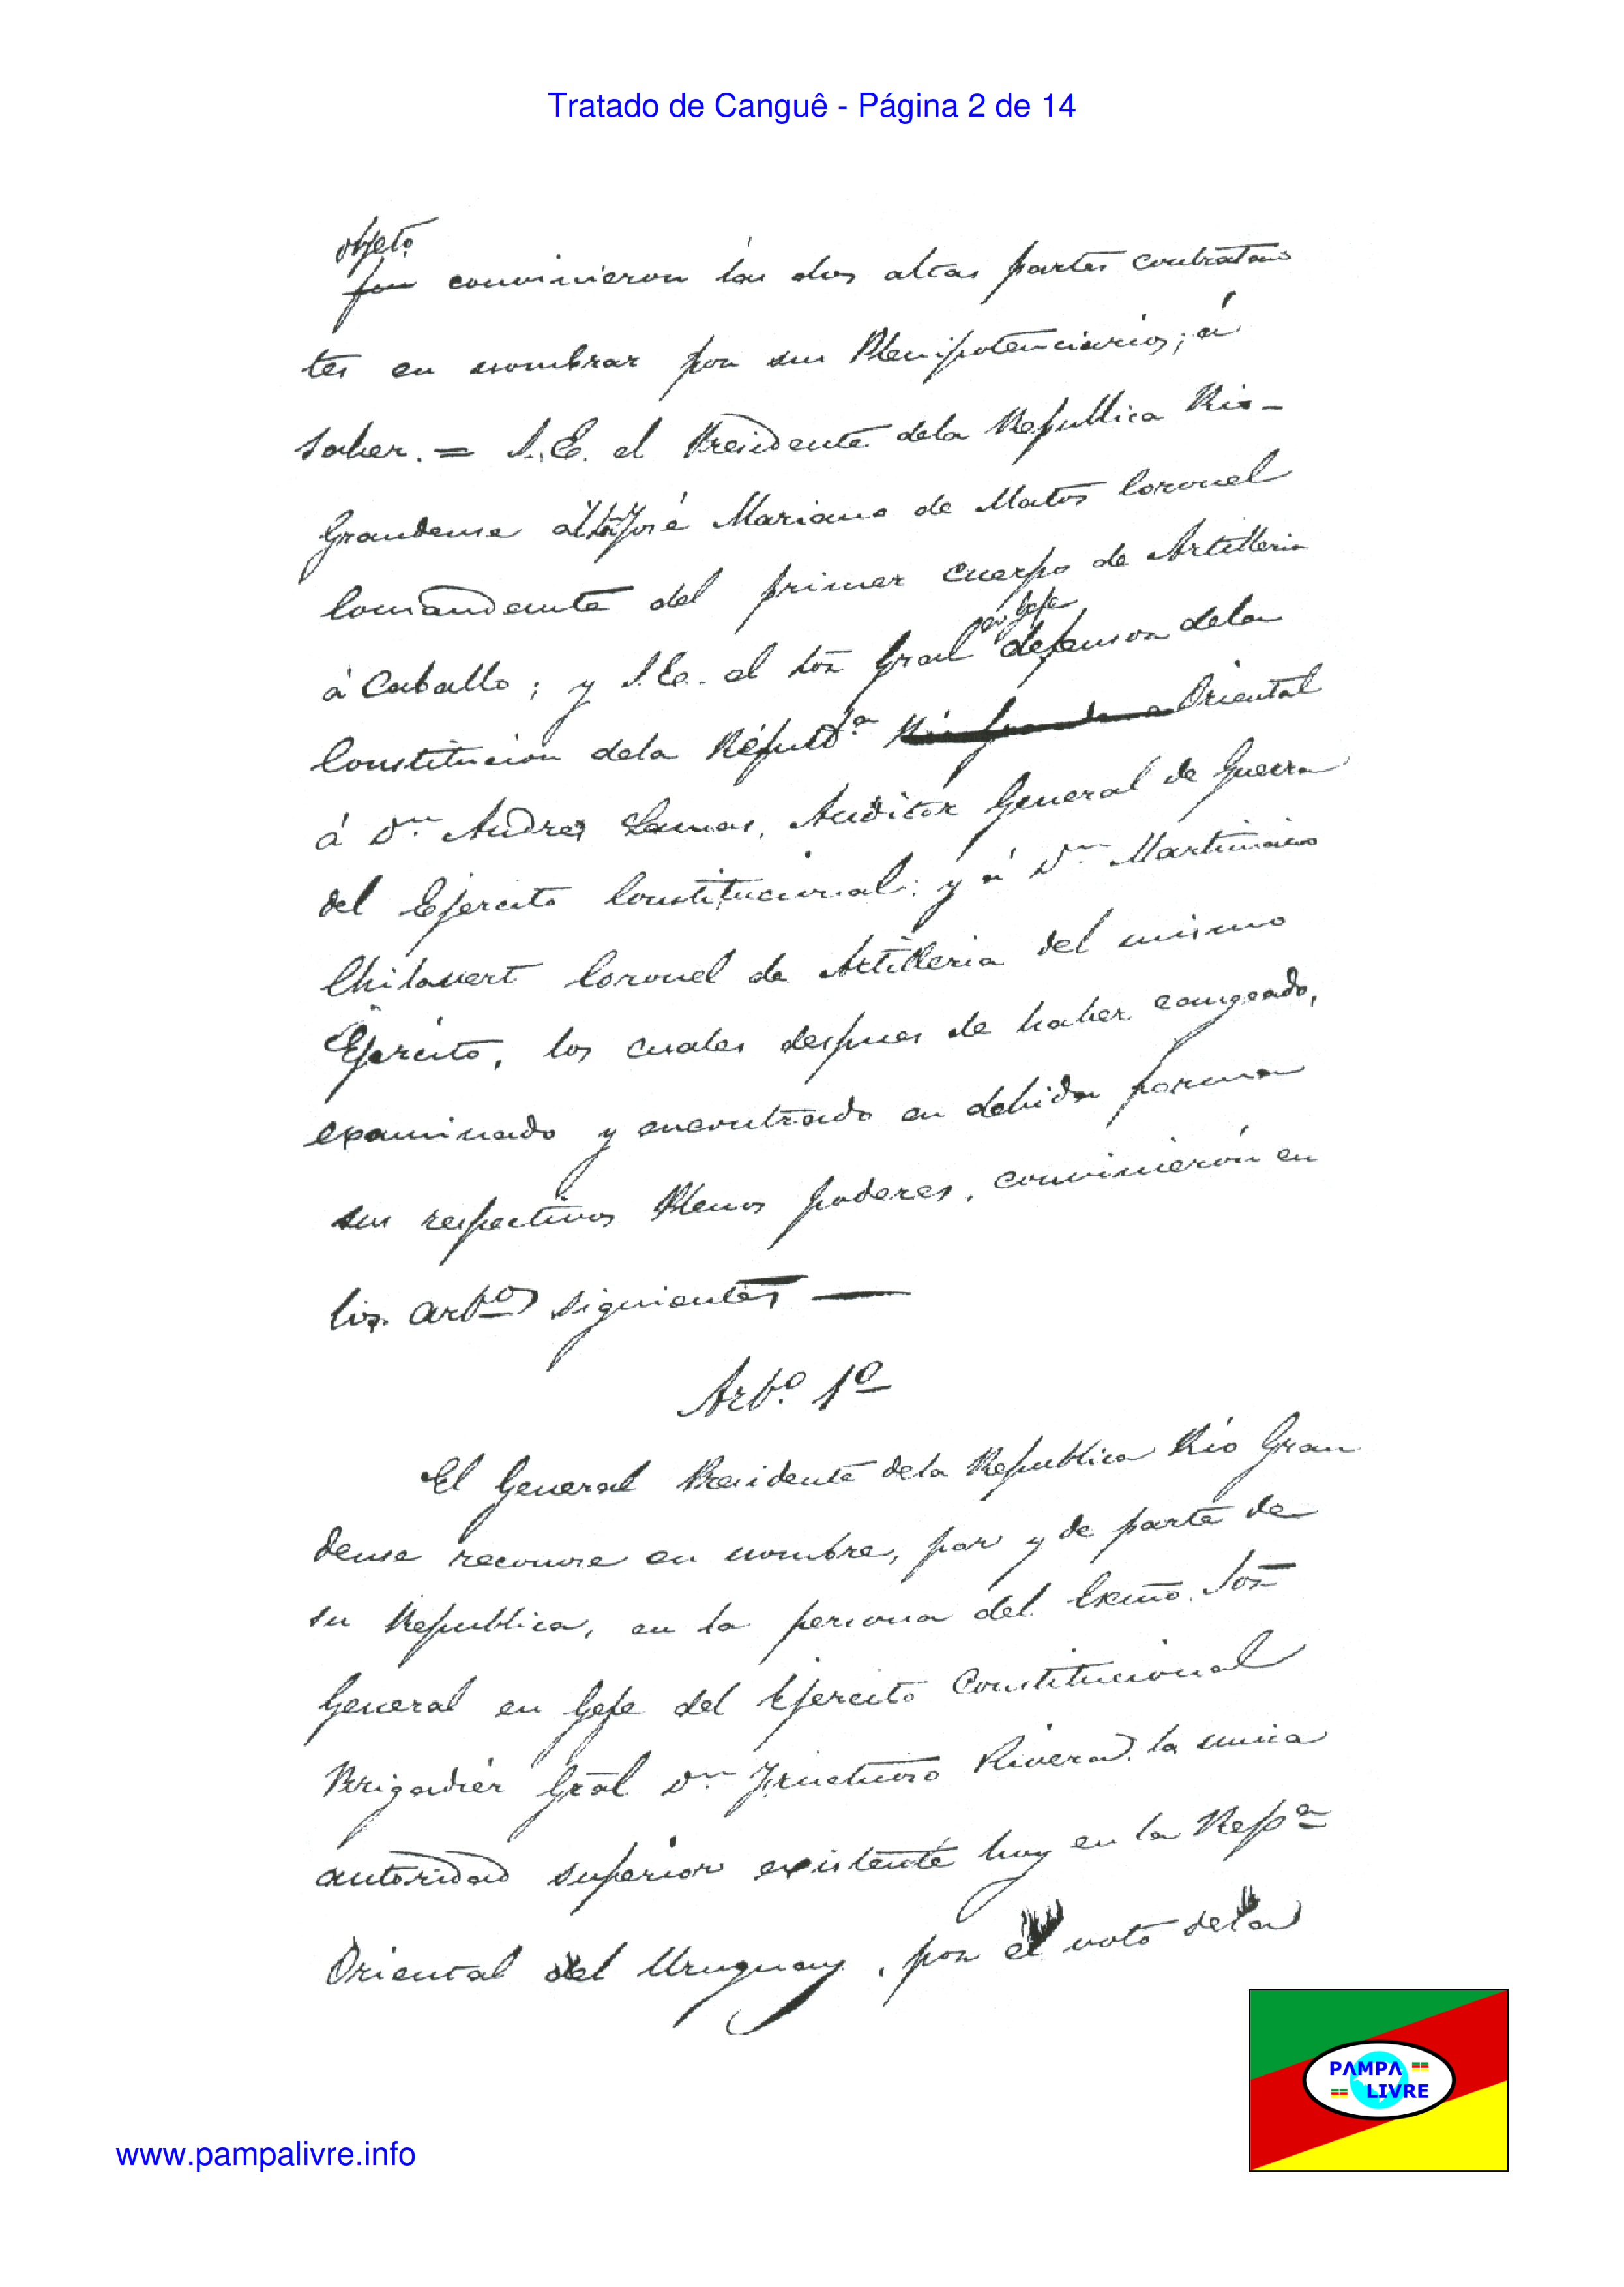 Tratado de Canguê - Página 2 de 14
objeto
convinieron las dos altas partes contratan
tes en nombrar por sus Plenipotenciarios; á
saber. = S. E. el Presidente dela Republica Rio-
Grandense al Sor José Mariano de Matos Coronel
Comandante del primer cuerpo de Artilleria
en Gefe
á Caballo; y S. E. el Sor Gral defensor dela
Constitucion dela Repubca Rio Grandense Oriental
á Dn Andres Lamas, Auditor General de Guerra
del Ejercito Constitucional: y á Dn Martiniano
Chilavert Coronel de Artilleria del mismo
Ejército, los cuales despues de haber cangeado,
examinado y encontrado en debida forma
sus respectivos Plenos poderes, convinierón en
los artos siguientes —
Arto. 1o
El General Presidente dela Republica Rio Gran
dense reconoce en nombre, por y de parte de
su Republica, en la persona del Exmo. Sor
General en Gefe del Ejercito Constitucional
Brigadier Gral Dn Fructuoso Rivera la unica
autoridad superior existente hoy en la Repa
Oriental del Uruguay, por el voto dela
PAMPA
LIVRE
www.pampalivre.info